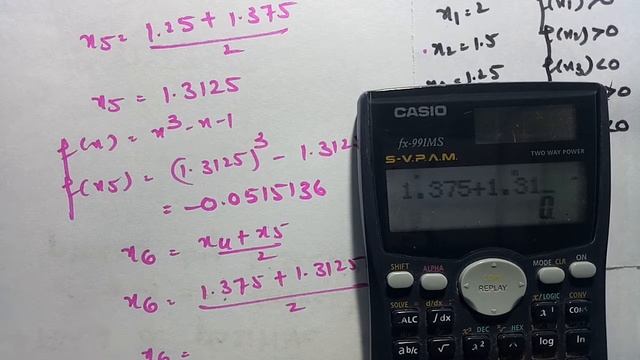 x5 = 1.25 + 1.375 / 2
x5 = 1.3125
f(x) = x³ - x - 1
f(x5) = (1.3125)³ - 1.312
= -0.0515136
x6 = x4 + x5 / 2
x6 = 1.375 + 1.3125 / 2
x6 =
x1 = 2
x2 = 1.5
1.25
f(x2) > 0
f(x3) < 0
CASIO
fx-991MS
S-V.P.A.M.
TWO WAY POWER
1.375+1.31_
0.
SHIFT
ALPHA
REPLAY
MODE CLR
ON
SOLVE
d/dx
∫dx
x!
LOGIC
CONV
DEC
HEX
ab/c
√
x²
^
log
ln